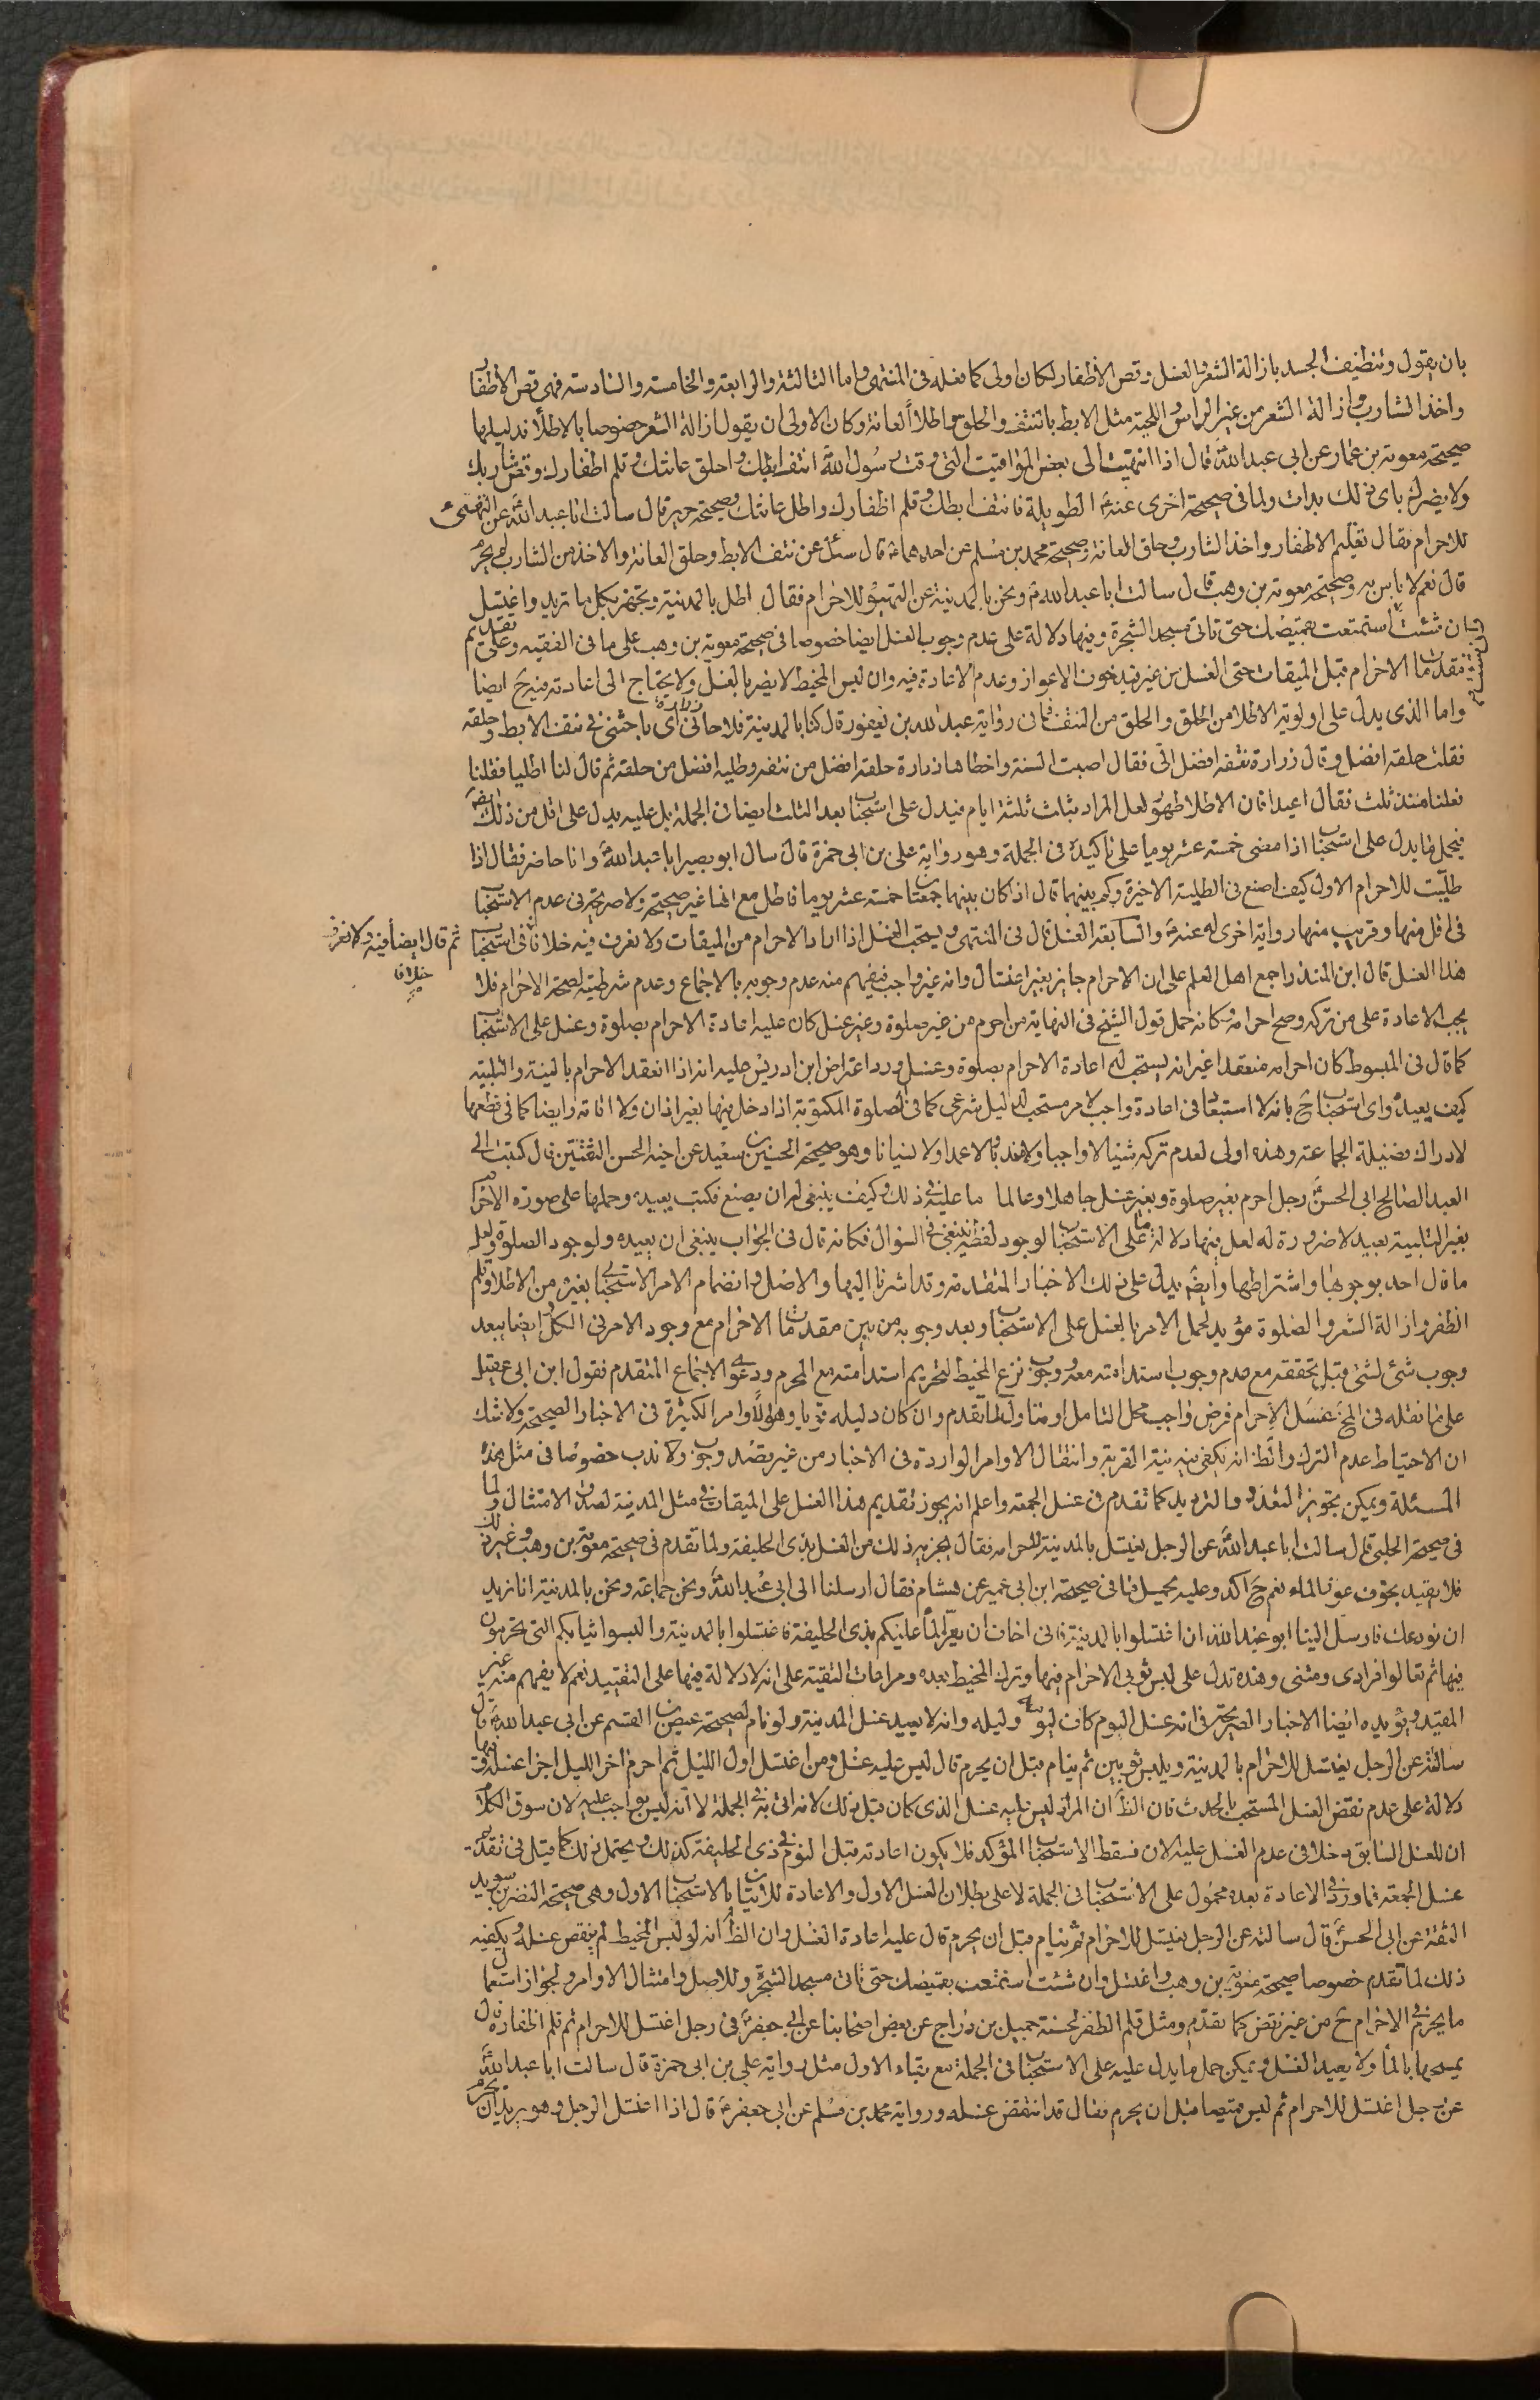 بان يقول وتنظيف الجسد بازالة الشعر والغسل وقص الأظفار لكان اولى كما فعله فى المنتهى واما الثالثة والرابعة والخامسة والسادسة فهى قص الأظفار
واخذ الشارب وازالة الشعر من غير الراس واللحية مثل الابط بالنتف والحلق واطلاء العانة وكان الاولى ان يقول ازالة الشعر خصوصا بالاطلاء فدليلها
صحيحة معوية بن عمار عن ابى عبد الله ع قال اذا انتهيت الى بعض المواقيت التى وقت رسول الله انتف ابطك واحلق عانتك وقلم اظفارك وقص شاربك
ولا يضرك باى ذلك بدات ولما فى صحيحة اخرى عنه ع الطويلة فانتف ابطك وقلم اظفارك واطل عانتك وصحيحة حريز قال سالت ابا عبد الله ع عن التهيئ
للاحرام فقال تقليم الاظفار واخذ الشارب وحلق العانة وصحيحة محمد بن مسلم عن احدهما ع قال سئل عن نتف الابط وحلق العانة والاخذ من الشارب ثم يحرم
قال نعم لا باس به وصحيحة معوية بن وهب قال سالت ابا عبد الله ع ونحن بالمدينة عن التهيؤ للاحرام فقال اطل بالمدينة وتجهز بكل ما تريد واغتسل
ان شئت استمتعت بقميصك حتى تاتى مسجد الشجرة وفيها دلالة على عدم وجوب الغسل ايضا خصوصا فى صحيحة معوية بن وهب على ما فى الفقيه وعلى تقديم
مقدمات الاحرام قبل الميقات حتى الغسل من غير قيد خوف الاعواز وعدم الاعادة فيه وان لبس المخيط لا يضر بالغسل ولا يحتاج الى اعادته فيه ح ايضا
واما الذى يدل على اولوية الاطلا من الحلق والحلق من النتف فهى رواية عبد الله بن يعفور قال كنا بالمدينة فلاحانى زرارة اى باحثنى فى نتف الابط وحلقه
فقلت حلقه افضل وقال زرارة نتفه افضل الى فقال اصبت السنة واخطاها زرارة حلقه افضل من نتفه وطليه افضل من حلقه ثم قال لنا اطليا فقلنا
فعلنا منذ ثلث فقال اعيدا فان الاطلا طهور لعل المراد بثلث ثلثة ايام فيدل على استحبابه بعد الثلث ايضا فى الجملة بل عليه يدل على اقل من ذلك ايضا
فيحمل ما يدل على استحبابه اذا مضى خمسة عشر يوما على تاكيده فى الجملة وهو رواية على بن ابى حمزة قال سال ابو بصير ابا عبد الله ع وانا حاضر فقال اذا
طليت للاحرام الاول كيف اصنع فى الطلية الاخيرة وكم بينهما قال اذا كان بينهما جمعتان خمسة عشر يوما فاطل مع انها غير صحيحة ولا صريحة فى عدم الاستحباب
فى اقل منها وقريب منها رواية اخرى له عنه ع والسابعة الغسل قال فى المنتهى ويستحب الغسل اذا اراد الاحرام من الميقات ولا نعرف فيه خلافا فى استحباب
ثم قال ايضا فيه ولا نعرف
خلافا
هذا الغسل قال ابن المنذر اجمع اهل العلم على ان الاحرام جايز بغير اغتسال وانه غير واجب فيفهم منه عدم وجوبه بالاجماع وعدم شرطيته لصحة الاحرام فلا
يجب الاعادة على من تركه وصح احرامه وكانه حمل قول الشيخ فى النهاية من احرم من غير صلوة وغير غسل كان عليه اعادة الاحرام بصلوة وغسل على الاستحباب
كما قال فى المبسوط كان احرامه منعقدا غير انه يستحب له اعادة الاحرام بصلوة وغسل ورد اعتراض ابن ادريس عليه انه اذا انعقد الاحرام بالنية والتلبية
كيف يعيده واى استحباب ح بانه لا استبعاد فى اعادة واجب لامر مستحب لدليل شرعى كما فى الصلوة المكتوبة اذا دخل فيها بغير اذان ولا اقامة وايضا كما فى قطعها
لادراك فضيلة الجماعة وهذه اولى لعدم تركه شيئا لا واجبا ولا مندوبا لا عمدا ولا نسيانا وهو صحيحة الحسين بن سعيد عن اخيه الحسن الثقتين قال كتبت الى
العبد الصالح ابى الحسن ع رجل احرم بغير صلوة وبغير غسل جاهلا او عالما ما عليه فى ذلك وكيف ينبغى له ان يصنع فكتب يعيده وحملها على صورة الاحرام
بغير التلبية بعيد لا ضرورة له لعل فيها دلالة ما على الاستحباب لوجود لفظ ينبغى فى السؤال فكانه قال فى الجواب ينبغى ان يعيده ولوجود الصلوة ولعله
ما قال احد بوجوبها واشتراطها وايضا يدل على ذلك الاخبار المتقدمة وقد اشرنا اليها والاصل وانضمام الامر الاستحبابى بغيره من الاطلا وقلم
الظفر وازالة الشعر والصلوة مؤيد لحمل الامر بالغسل على الاستحباب وبعد وجوبه من بين مقدمات الاحرام مع وجود الامر فى الكل ايضا ببعد
وجوب شئ لشئ قبل تحققه مع عدم وجوب استدامته معه ووجوب نزع المخيط لتحريم استدامته مع المحرم ودعوى الاجماع المتقدم فقول ابن ابى عقيل
على ما نقله فى المخ غسل الاحرام فرض واجب محل التامل او متاول لما تقدم وان كان دليله قويا وهو الاوامر الكثيرة فى الاخبار الصحيحة ولا شك
ان الاحتياط عدم الترك والظ انه يكفى فيه نية القربة وامتثال الاوامر الواردة فى الاخبار من غير قصد وجوب ولا ندب خصوصا فى مثل هذه
المسئلة ويمكن تجويز التعدد والترديد كما تقدم فى غسل الجمعة واعلم انه يجوز تقديم هذا الغسل على الميقات فى مثل المدينة لصدق الامتثال ولما
فى صحيحة الحلبى قال سالت ابا عبد الله ع عن الرجل يغتسل بالمدينة لاحرامه فقال يجزيه ذلك من الغسل بذى الحليفة ولما تقدم فى صحيحة معوية بن وهب وغير ذلك
فلا يقيد بخوف عوز الماء نعم ح اكد وعليه يحمل ما فى صحيحة ابن ابى عمير عن هشام فقال ارسلنا الى ابى عبد الله ع ونحن جماعة ونحن بالمدينة انا نريد
ان نودعك فارسل الينا ابو عبد الله ع ان اغتسلوا بالمدينة فانى اخاف ان يعز الماء عليكم بذى الحليفة فاغتسلوا بالمدينة والبسوا ثيابكم التى تحرمون
فيها ثم تعالوا فرادى ومثنى وهذه تدل على لبس ثوبى الاحرام فيها وترك المخيط بعده ومراعات التقية على انه لا دلالة فيها على التقييد نعم لا يفهم منه غير
المقيد ويؤيده ايضا الاخبار الصريحة فى انه غسل اليوم كاف ليومه وليله وانه لا يعيد غسل المدينة ولو نام لصحيحة عيص بن القسم عن ابى عبد الله ع قال
سالته عن الرجل يغتسل للاحرام بالمدينة ويلبس ثوبين ثم ينام قبل ان يحرم قال ليس عليه غسل ومن اغتسل اول الليل ثم احرم اخر الليل اجزا غسله وفيها
دلالة على عدم نقض الغسل المستحب بالحدث فان الظ ان المراد ليس عليه غسل الذى كان قبل ذلك لانه اتى به فى الجملة لا انه ليس بواجب عليه لان سوق الكلام
ان للغسل السابق دخلا فى عدم الغسل عليه الان فسقط الاستحباب المؤكد فلا يكون اعادته قبل النوم فى ذى الحليفة كذلك ويحتمل ذلك كما قيل فى تقديم
غسل الجمعة فما ورد فى الاعادة بعده محمول على الاستحباب فى الجملة لا على بطلان الغسل الاول والاعادة للاتيان بالاستحباب الاول وهى صحيحة النضر بن سويد
الثقة عن ابى الحسن ع قال سالته عن الرجل يغتسل للاحرام ثم ينام قبل ان يحرم قال عليه اعادة الغسل وان الظ انه لو لبس المخيط لم ينقض غسله ويكفيه
ذلك لما تقدم خصوصا صحيحة معوية بن وهب واغتسل وان شئت استمتعت بقميصك حتى تاتى مسجد الشجرة وللاصل وامتثال الاوامر ولجواز استعمال
ما يحرم فى الاحرام ح من غير نقض كما تقدم ومثل قلم الظفر لحسنة جميل بن دراج عن بعض اصحابنا عن ابى جعفر ع فى رجل اغتسل للاحرام ثم قلم اظفاره قال
يمسحها بالماء ولا يعيد الغسل ويمكن حمل ما يدل عليه على الاستحباب فى الجملة مع بقاء الاول مثل رواية على بن ابى حمزة قال سالت ابا عبد الله ع
عن رجل اغتسل للاحرام ثم لبس قميصا قبل ان يحرم فقال قد انتقض غسله ورواية محمد بن مسلم عن ابى جعفر ع قال اذا اغتسل الرجل وهو يريد ان يحرم